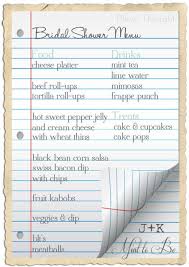 Bridal Shower Menu
Food
cheese platter
beef roll-ups
tortilla roll-ups
hot sweet pepper jelly
and cream cheese
with wheat thins
black bean corn salsa
with tortilla chips
fruit kabobs
veggies & dip
blt's
meatballs
Drinks
mint tea
lime water
mimosas
frappe punch
Treats
cake & cupcakes
cake pops
J+K
to Be